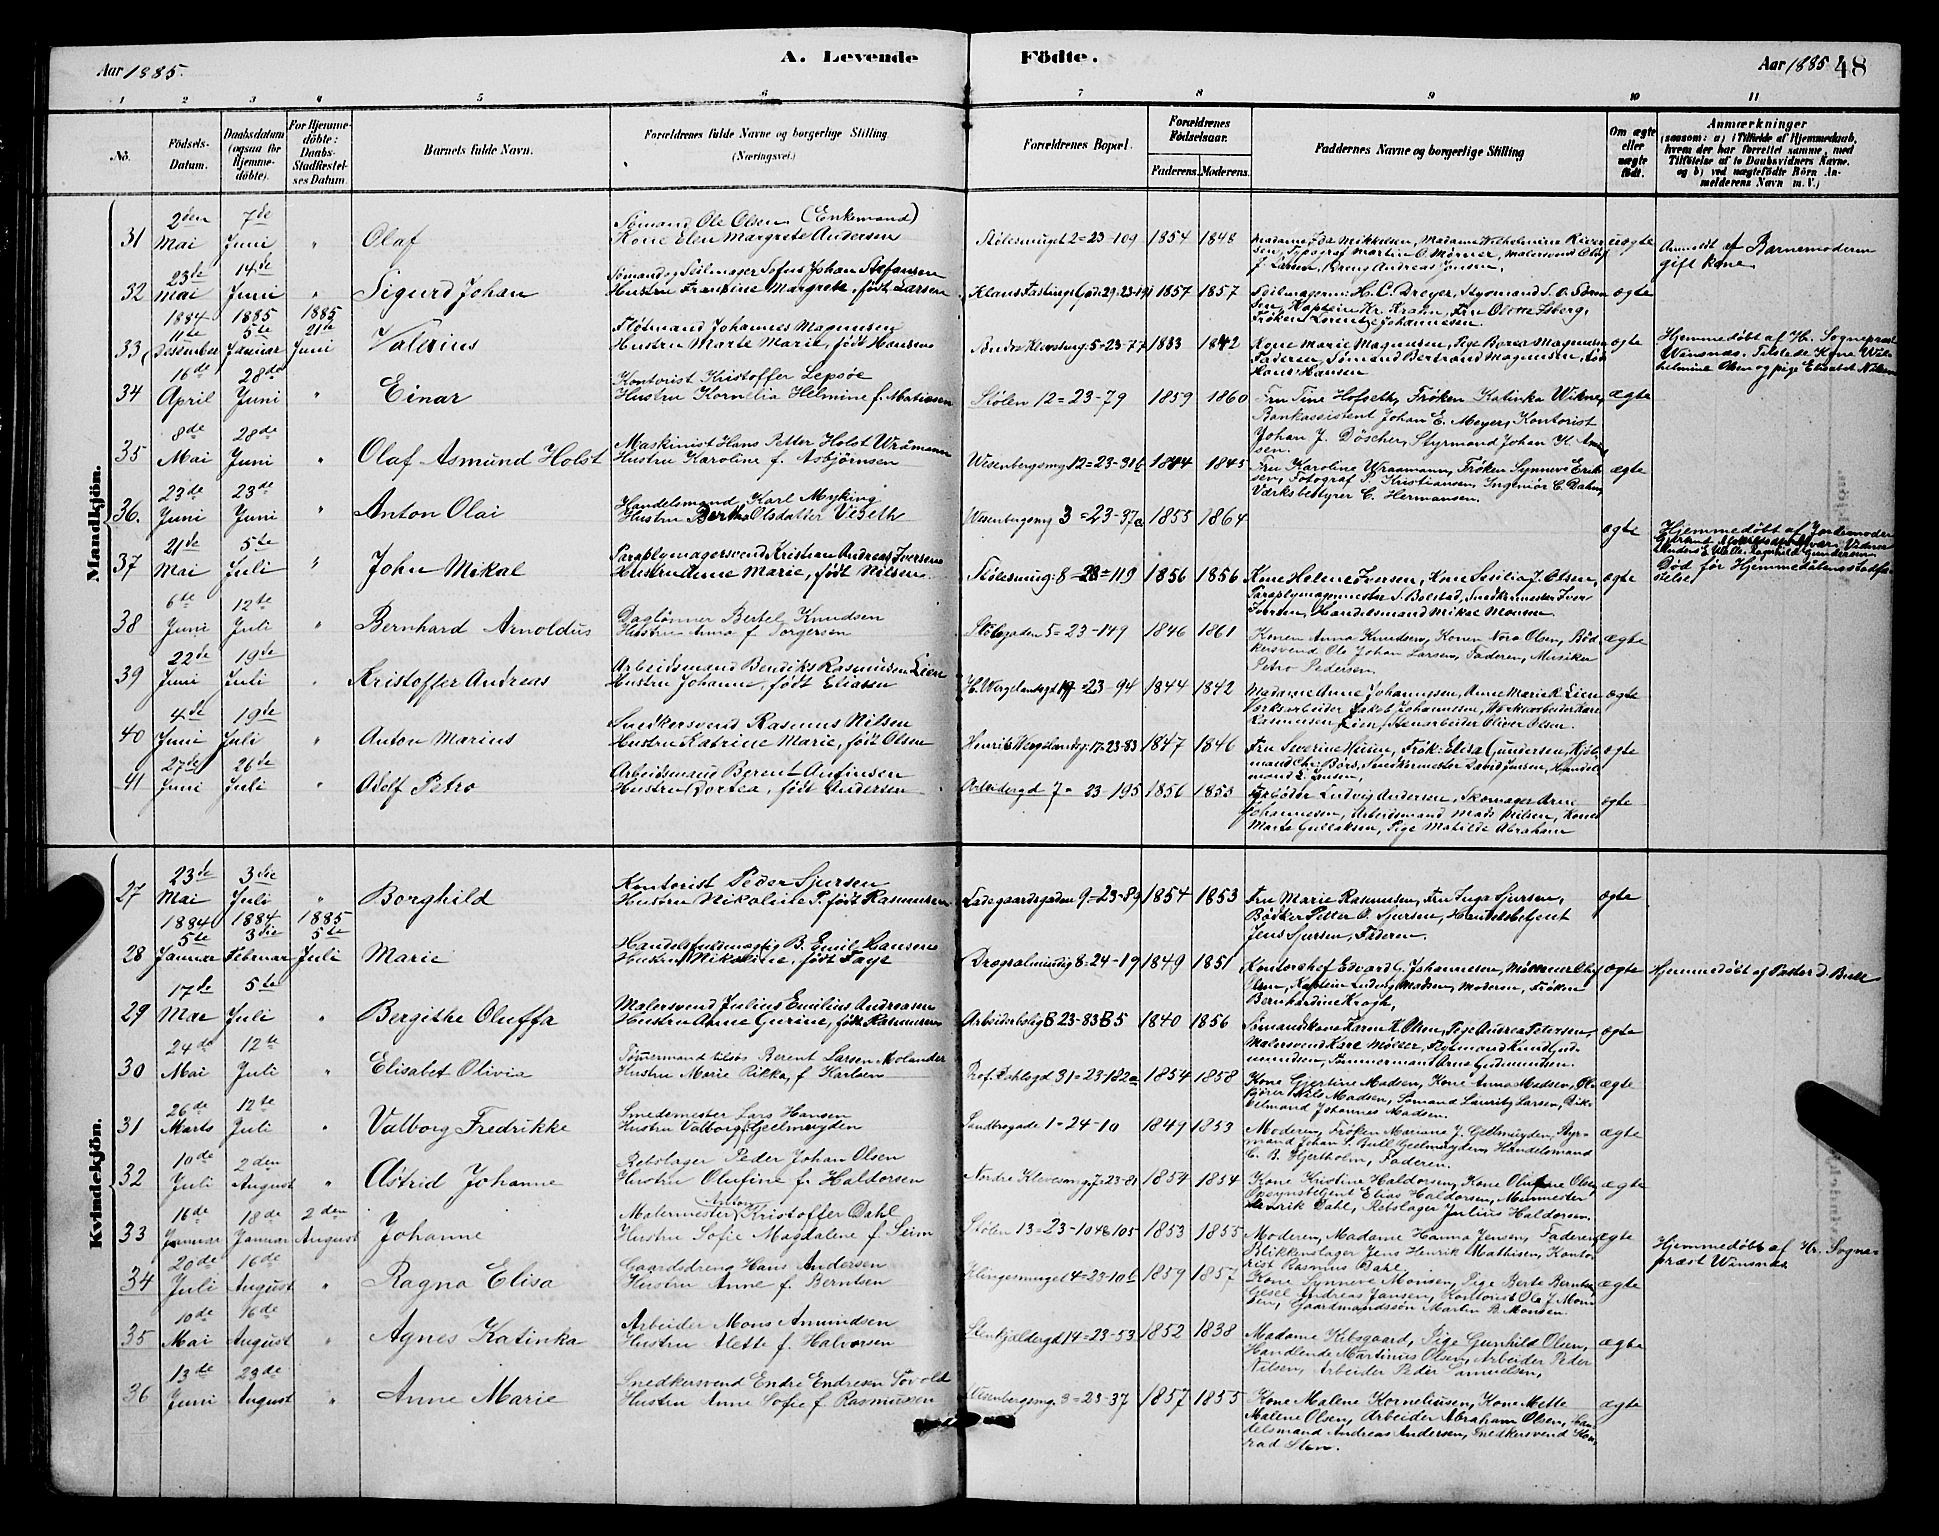 Aar 1885.
A. Levende
Födte.
Aar 1885
48
1 2 3 4 5 6 7 8 9 10 11
No.
Födsels-Datum.
Daabsdatum (ogsaa for Hjemmedöbte).
For Hjemmedöbte: Daabs-Stadfestelses Datum.
Barnets fulde Navn.
Forældrenes fulde Navne og borgerlige Stilling.
(Næringsvei.)
Forældrenes Bopæl.
Forældrenes Födselsaar.
Faderens. Moderens.
Faddernes Navne og borgerlige Stilling
Om ægte eller uægte födt.
Anmærkninger
(saasom: a) i Tilfælde af Hjemmedaab, hvem der har forrettet samme, med Tilföielse af to Daabsvidners Navne. og b) ved uægtefödte Börn Anmelderens Navn m. V.)
Mandkjön.
31 2den Mai 7de Juni " Olaf
Sömand Ole Olsen (Enkemand)
Kone Elen Margrete Andersen
Stølesmuget 2=23-109 1854 1848
Madame Ida Mikkelsen, Madame Wilhelmine
Typograf Martin O. Mörner, Malersvend Olaf
f. Larsen, Andreas Jensen.
uægte
Anmeldt af Barnemoderen
gift kone
32 23de Mai 14de Juni " Sigurd Johan
Sömand og Seilmager Sofus Johan Stefansen
Hustru Franzine Margrete, født Larsen
1857 1857
Seilmagerm. H. C. Dreyer, Styrmand
Kaptein Kr. Krahn, Fru Odette Isberg,
Frøken Lorentze Johannesen.
ægte
33 1884 11te Desember 1885 5te Januar 1885 21de Juni Valerius
Fløtmand Johannes Magnusen
Hustru Marte Marie, født Hansen
5-23-77 1833 1842
Kone Marie Magnusen, Pige Borea Magnusen
Faderen, Sømand Bertrand Magnusen,
Hans Hansen
ægte
Hjemmedøbt af Hr. Sogneprest
Winsnæs. Tilstede Kone Wil-
helmine Olsen og pige Elisabet Nilsen
34 16de April 28de Juni " Einar
Kontorist Kristoffer Lepsöe
Hustru Kornelia Helmine f. Matiesen
Stølen 12=23-79 1859 1860
Fru Tine Hofseth, Frøken Katinka Wikne,
Bankassistent Johan E. Meyer, Kontorist
Johan J. Döscher, Styrmand Johan
ægte
35 8de Mai 28de Juni " Olaf Asmund Holst
Maskinist Hans Petter Holst Wråmann
Hustru Karoline f. Asbjörnsen
Wesenbergsmg 12=23-31b 1844 1845
Fru Karoline Wraamann, Frøken Synneve Erik-
sen, Fotograf P. Kristiansen, Ingeniör C. Dahm,
Værksbestyrer C. Hermansen.
ægte
36. 23de Juni 23de Juni " Anton Olai
Handelsmand Karl Myking
Hustru Bertha Olsdatter Veseth
Wesenbergsmg 3=23-37a 1855 1864
ægte
Hjemmedøbt af Jordemoder
Død før Hjemmedåbens stadfæ-
stelse
37 21de Mai 5te Juli " John Mikal
Paraplymagersvend Kristian Andreas Iversen
Hustru Anne Marie, født Nilsen.
Stølesmug: 8=23=119 1856 1856
Kone Helene Iversen, Kone Sesilia J. Olsen,
Paraplymagermester S. Bolstad, Snedkermester Iver
Iversen, Handelsmand Mikal Monsen.
ægte
38 6te Juni 12te Juli " Bernhard Arnoldus
Daglønner Bertel Knudsen
Hustru Anna f. Torgersen
Stølegaden 5=23-149 1846 1861
Konen Anna Knudsen, Konen Nora Olsen, Bød-
kersvend Ole Johan Larsen, Faderen, Musiker
Petro Pedersen.
ægte
39 22de Juni 19de Juli " Kristoffer Andreas
Arbeidsmand Bendiks Rasmussen Lien
Hustru Johanne, født Eliassen
H. Wergelandsgd 19=23 94 1844 1842
Madame Anne Johannesen, Anne Marie R. Lien
Værksarbeider Jakob Johannesen, Værksarbeider Karl
Rasmussen Lien, Stenarbeider Oliver Olsen.
ægte
40 4de Juni 19de Juli " Anton Marius
Snedkersvend Rasmus Nilsen
Hustru Katrine Marie, født Olsen
Henrik Wergelandsg. 17=23-83 1847 1846
Fru Severine Heien, Frøk: Elisa Gundersen, Kjöb-
mand Chr. Börs, Snedkermester David Jensen, Handels-
mand L. Jansen,
ægte
41 27de Juni 26de Juli " Adolf Petro
Arbeidsmand Berent Anfinsen
Hustru Dortea, født Andersen
Arbeidergd 7= 23-195 1856 1855
Arbeider Ludvig Andersen, Skomager Arne
Johannesen, Arbeidsmand Mads Nilsen, Kone
Marta Gullaksen, Pige Matilde Abraham
ægte
Kvindekjön.
27 23de Mai 3die Juli " Borghild
Kontorist Peder Sjursen
Hustru Nikoline P. født Rasmussen
Ladegaardsgaden 9=23-89 1854 1853
Fru Marie Rasmussen, Fru Inga Sjursen,
Bødker Petter O. Sjursen, Handelsbetjent
Jens Sjursen, Faderen.
ægte
28 1884 5te Januar 1884 3die Februar 1885 5te Juli Marie
Handelsfuldmægtig B. Emil Hansen
Hustru Nikoline, født Faye
8=24-19 1849 1851
Kontorchef Edvard C. Johannesen,
Olsen, Kaptein Ludvig Madsen, Moderen, Frøken
Bernhardine Kragh,
ægte
Hjemmedøbt af Pastor d. Bull
29 17de Mai 5te Juli " Bergithe Oluffa
Malersvend Julius Emilius Andreasen
Hustru Anne Gurine, født Rasmussen
Arbeiderbolig B 23-83B5 1840 1856
Sömandskone Karen K. Olsen, Pige Andrea Petersen,
Malersvend Karl Møller, Styrmand Knud Gud-
mundsen, Tømmermand Arne Gudmundsen.
ægte
30 24de Mai 12te Juli " Elisabet Olivia
Tømmermand tilsøs Berent Larsen Molander
Hustru Marie Rikka, f. Karlsen
Prof. Dahlsgd 31=23-182a 1854 1858
Kone Gjertine Madsen, Kone Anna Madsen,
Nils Madsen, Sømand Lauritz Larsen,
Johannes Madsen.
ægte
31 26de Marts 12te Juli " Valborg Fredrikke
Smedemester Lars Hansen
Hustru Valborg f. Gjelmuyden
Sandbrogade 1=24-10 1849 1853
Moderen, Frøken Mariane J. Gelmuyden, Styr-
mand Johan S. Bull Gelmuyden, Handelsmand
C. B. Hjertholm, Faderen.
ægte
32 10de Juli 2den August " Astrid Johanne
Rebslager Peder Johan Olsen
Hustru Olufine f. Haldorsen
Nordre Klevesmg. 7=23-81 1854 1854
Kone Kristine Haldorsen, Kone Olufine Olsen
Opsynsbetjent Elias Haldorsen, Murmester
Henrik Dahl, Rebslager Julius Haldorsen.
ægte
33 16de Januar 18de Januar 2den August Johanne
Malermester Anton Kristoffer Dahl
Hustru Sofie Magdalene f. Seim
Stølen 13=23-104 & 105 1853 1855
Moderen, Madame Hanna Jensen, Faderen,
Blikkenslager Jens Henrik Mathisen, Konto-
rist Rasmus Dahl.
ægte
Hjemmedøbt af Hr. Sogne-
præst Winsnæs
34 20de Juli 16de August " Ragna Elisa
Gaardsdreng Hans Andersen
Hustru Anne f. Berntsen
Klingesmuget 4=23-10b 1859 1857
Kone Synneve Monsen, Pige Berte Berntsen,
Gesel Andreas Jansen, Kontorist Ole J. Mon-
sen, Gaardmandssön Martin B. Monsen.
ægte
35 10de Mai 16de August " Agnes Katinka
Arbeider Mons Amundsen
Hustru Alette f. Halvorsen
Stenkjeldergd 14=23-53 1852 1838
Madame Kelsgaard, Pige Gunhild Olsen,
Handlende Martinus Olsen, Arbeider Peder
Nilsen, Arbeider Peder Samuelsen,
ægte
36 13de Juni 23de August " Anne Marie
Snedkersvend Endre Endresen Søvold
Hustru Anne Sofie f. Rasmussen
Wesenbergsmg. 3=23-37 1857 1855
Kone Malene Korneliusen, Kone Mette
Malene Olsen, Arbeider Abraham Olsen, Han-
delsmand Andreas Andersen, Snedkersvend Kon-
rad Steen.
ægte